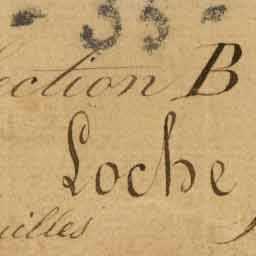 - 55 -
ection B
Loche
uilles